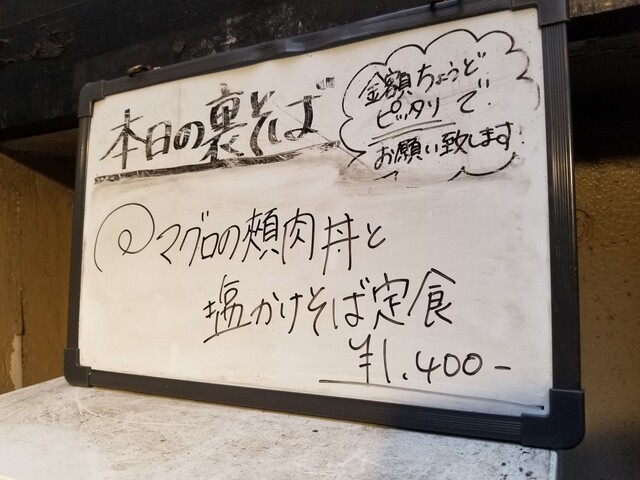 本日の裏そば
金額ちょうど
ピッタリで
お願い致します
マグロの頬肉丼と
塩かけそば定食
¥1,400-